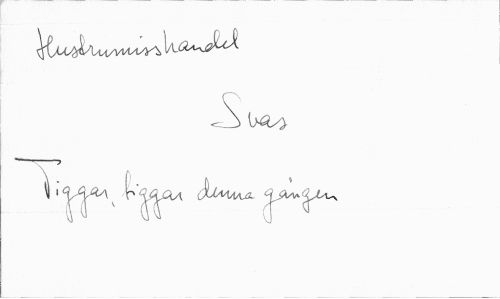 Hustrumisshandel
Svas
Tiggar, tiggar denna gången